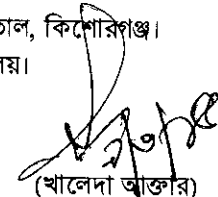 তাল, কিশোরগঞ্জ।
লয়।
(খালেদা আক্তার)